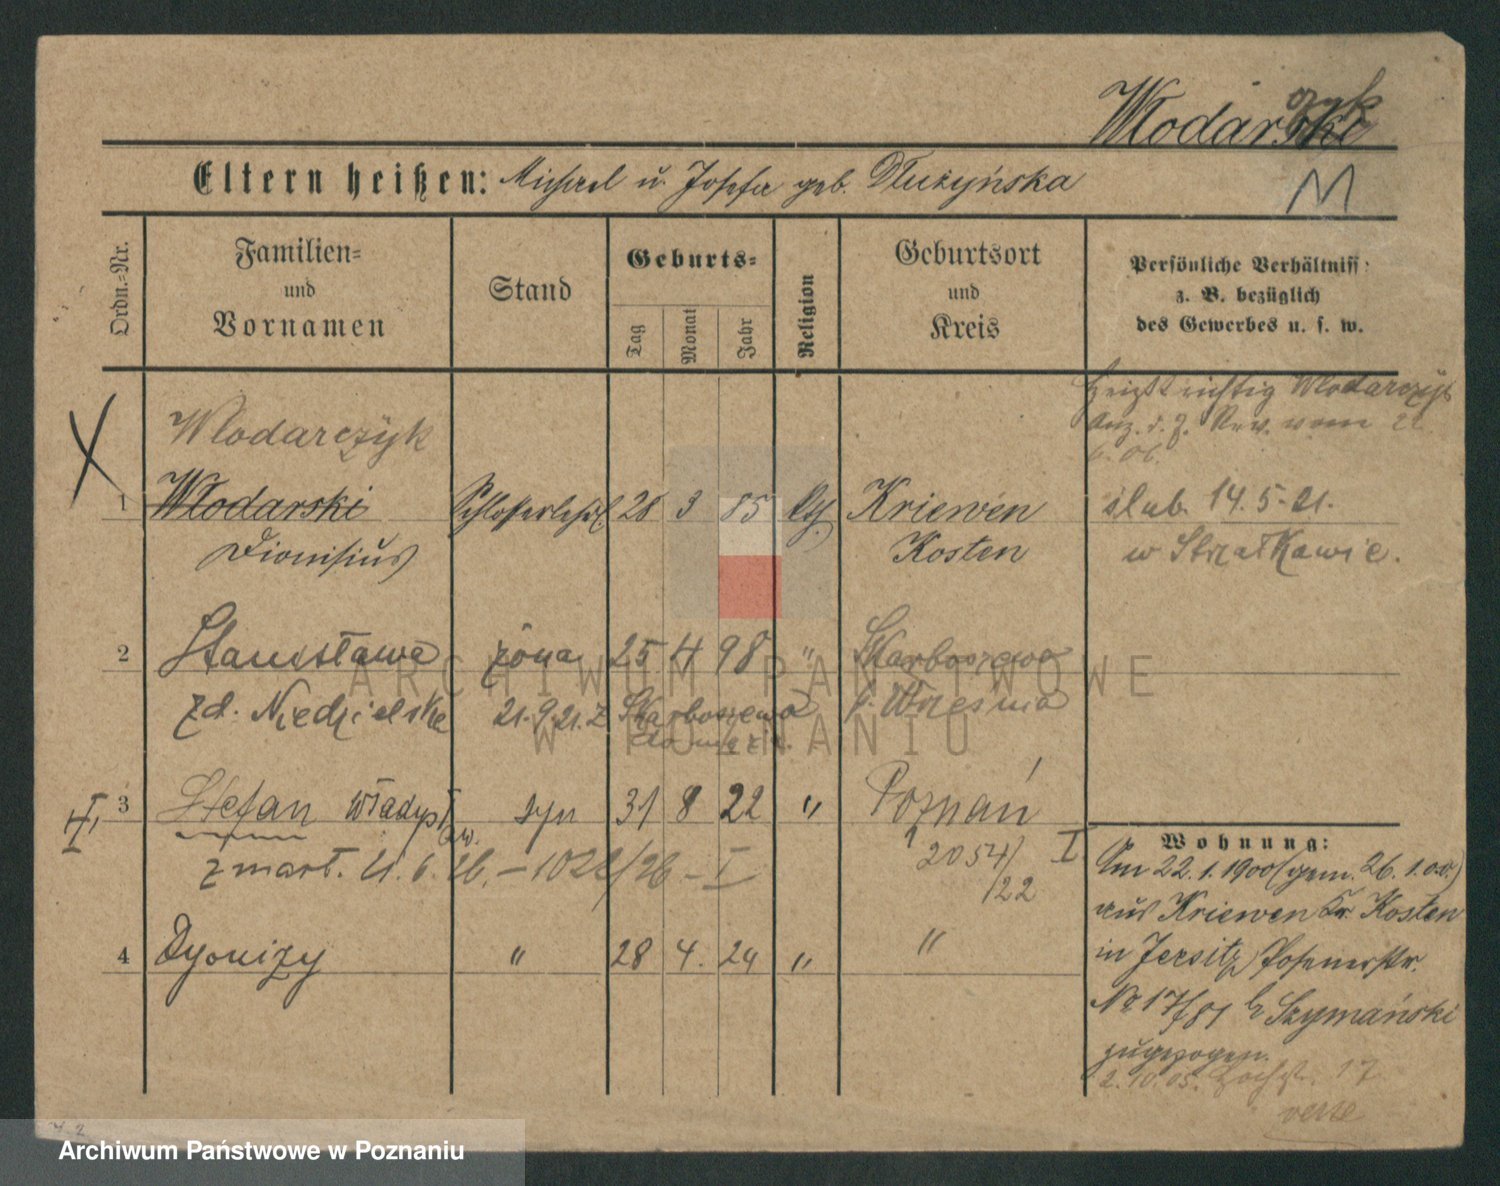 Włodarski
czyk
Eltern heißen: Michael u. Josefa geb. Dłużyńska
M
Ordn.-Nr.
Familien-
und
Vornamen
Stand
Geburts-
Tag
Monat
Jahr
Religion
Geburtsort
und
Kreis
Persönliche Verhältniss
z. B. bezüglich
des Gewerbes u. s. w.
heißt richtig Wlodarczyk
Anz. d. Z. Rev. vom 22.
6. 06.
Wlodarczyk
1 Włodarski Schlosserlehrl 28 3 85 Kriewen
Dionisius Kosten
ślub. 14.5.21.
w Strzałkowie.
2 Stanisława żona 25 4 98 " Skarboszewo
zd. Niedzielska 21.9.21. z Skarboszewa p. Września
do męża.
3 Stefan Władysł syn 31 8 22 " Poznań
aw.
zmarł. 21. 6. 26. – 1022/26 – I
2054/ I
/22
II
4 Dyonizy " 28 4. 24 " "
Wohnung:
Am 22.1.1900 (gem. 26.1.00.)
aus Kriewen Kr. Kosten
in Jersitz Posenerstr.
No 17/81 b Szymański
zugezogen.
2.10.05. 17
verte
ARCHIWUM PAŃSTWOWE
W POZNANIU
Archiwum Państwowe w Poznaniu